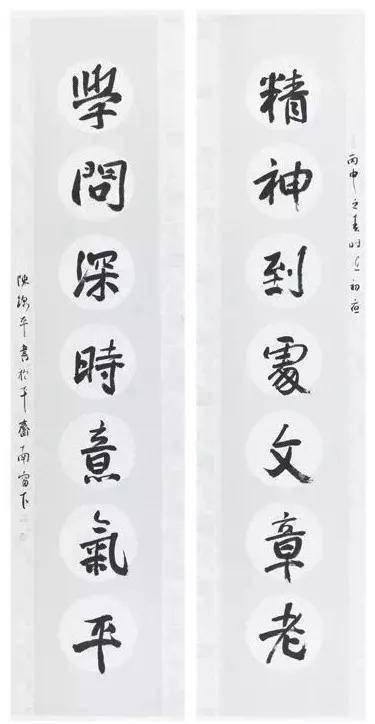 丙申之春时
精神到處文章老
學問深時意氣平
陳 平書於 齋南窗下